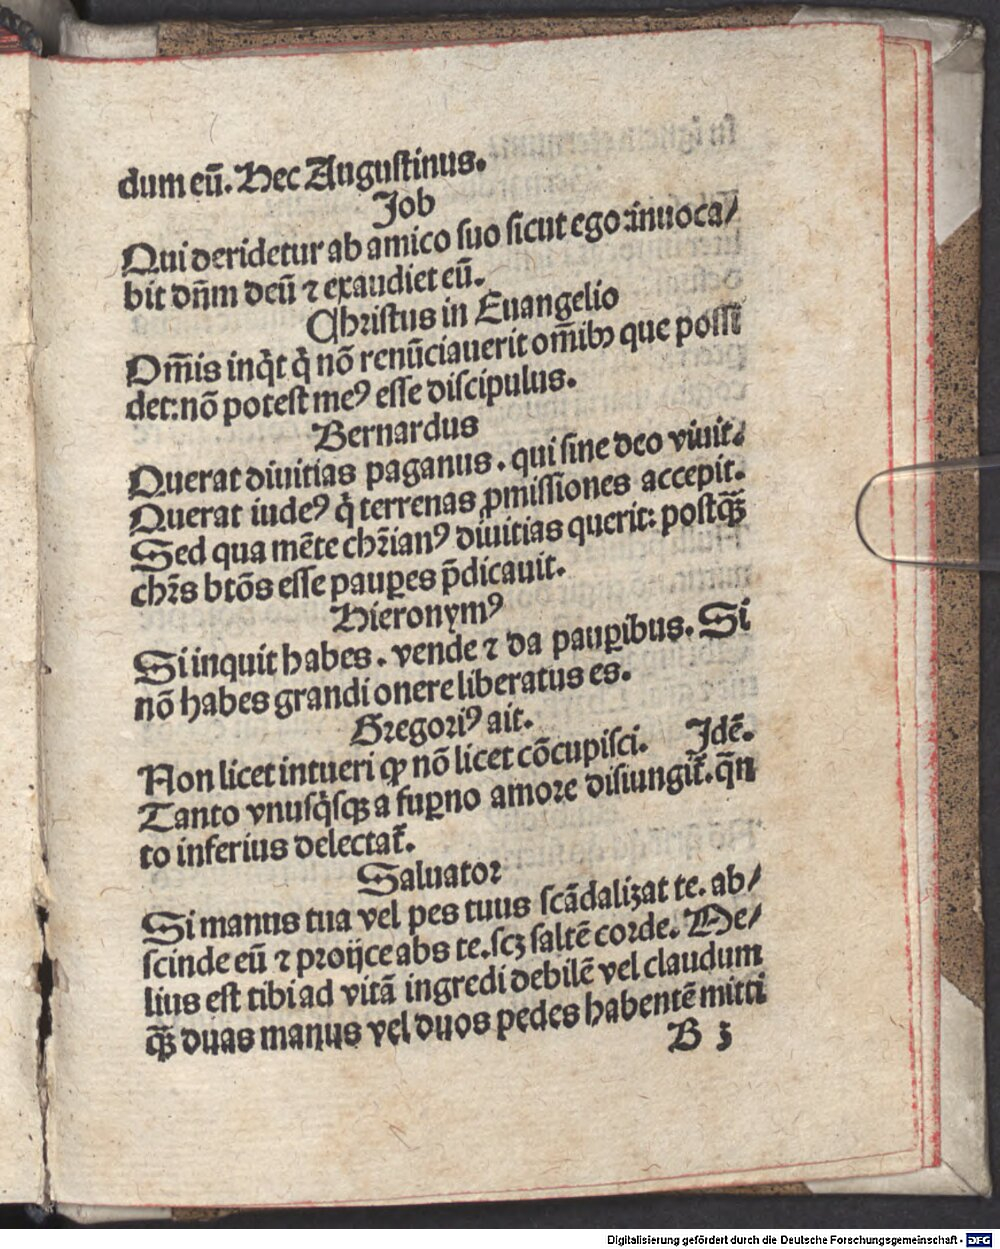 dum eū. Hec Augustinus.
Job
Qui deridetur ab amico suo sicut ego:inuoca/
bit dñm deū ⁊ exaudiet eū.
Christus in Euangelio
Om̄is inq̇t q̇ nō renūciauerit om̄ibꝫ que possi
det:nō potest meꝰ esse discipulus.
Bernardus
Querat diuitias paganus. qui sine deo viuit.
Querat iudeꝰ q̇ terrenas ꝓmissiones accepit.
Sed qua mēte chr̄ianꝰ diuitias querit: postqꝫ̄
chr̄s btōs esse pauꝑes p̄dicauit.
Hieronymꝰ
Si inquit habes. vende ⁊ da pauꝑibus. Si
nō habes grandi onere liberatus es.
Gregoriꝰ ait.
Non licet intueri ꝙ nō licet cōcupisci. Idē.
Tanto vnusq̇sqꝫ a suꝑno amore disiungit̄. qn̄
to inferius delectat̄.
Saluator
Si manus tua vel pes tuus scādalizat te. ab/
scinde eū ⁊ proijce abs te. scꝫ saltē corde. Me/
lius est tibi ad vitā ingredi debilē vel claudum
qꝫ̄ duas manus vel duos pedes habentē mitti
B 3
Digitalisierung gefördert durch die Deutsche Forschungsgemeinschaft - DFG